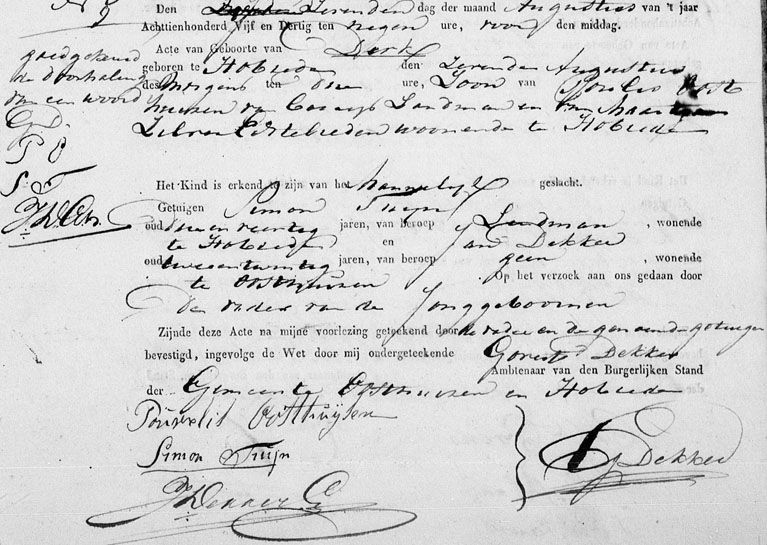 Den Zevenden dag der maand Augustus van 't jaar
Achttienhonderd Vijf en Dertig ten negen ure, voor den middag.
Acte van Geboorte van Dirk
geboren te Hobrede den Zevenden Augustus
des Morgens ten drie ure, Zoon van Oost
huisen van beroep Landman en van Maartje
Echtelieden woonende te Hobrede
goedgekeurd
de doorhaling
van een woord
G. D.
P O
S. T
Het Kind is erkend te zijn van het mannelijk geslacht.
Getuigen Simon Tuijn
oud jaren, van beroep Landman, wonende
te Hobrede en Jan Dekker
oud tweeentwintig jaren, van beroep geen wonende
te Oosthuisen Op het verzoek aan ons gedaan door
de vader van de Jonggeboornen
Zijnde deze Acte na mijne voorlezing geteekend door de vader en de genoemde getuigen
bevestigd, ingevolge de Wet door mij ondergeteekende Dekker
Ambtenaar van den Burgerlijken Stand
der Gemeente Oosthuisen en Hobrede
Oosthuijsen
Simon Tuijn
Dekker